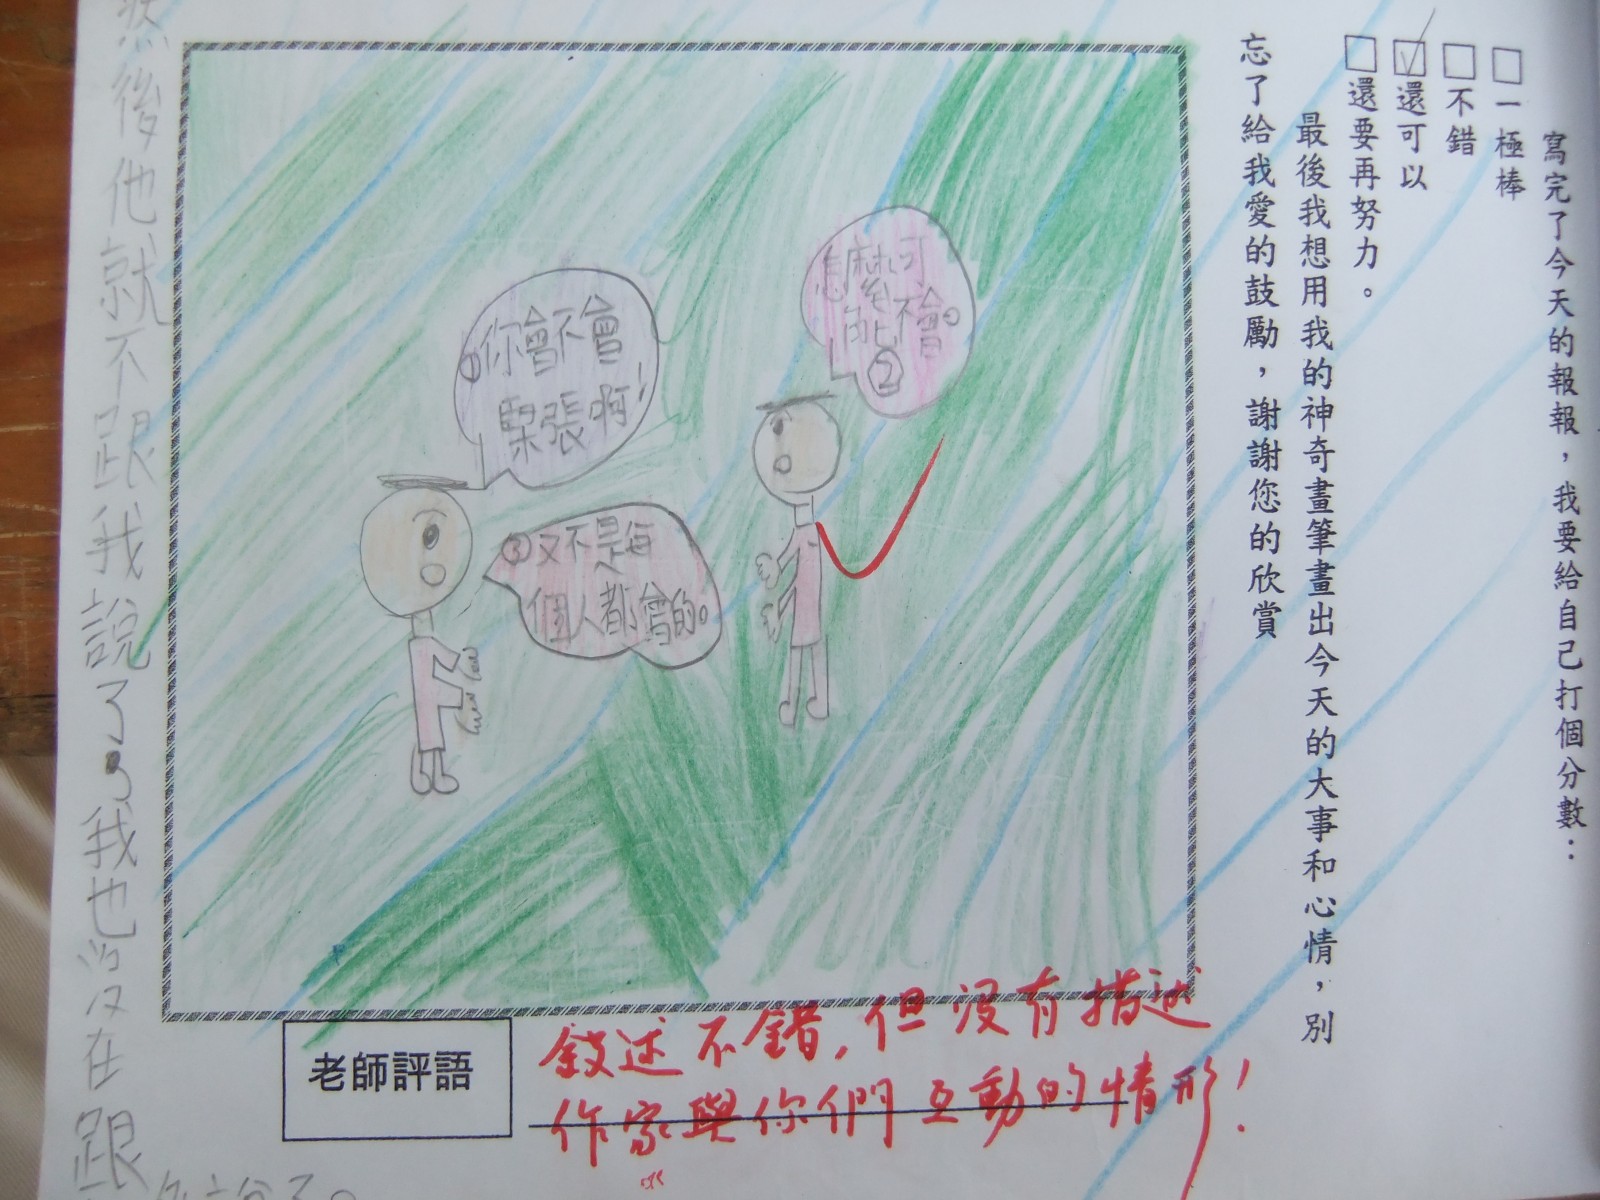 寫完了今天的報報，我要給自己打個分數：
□一極棒
□不錯
☑還可以
□還要再努力。
最後我想用我的神奇畫筆畫出今天的大事和心情，別
忘了給我愛的鼓勵，謝謝您的欣賞
①你會不會
緊張啊！
怎麼可
能不會。
②
③又不是每
個人都會的。
然後他就不跟我說了，我也沒在跟
說了。
老師評語
敘述不錯，但沒有描述
作家與你們互動的情形！